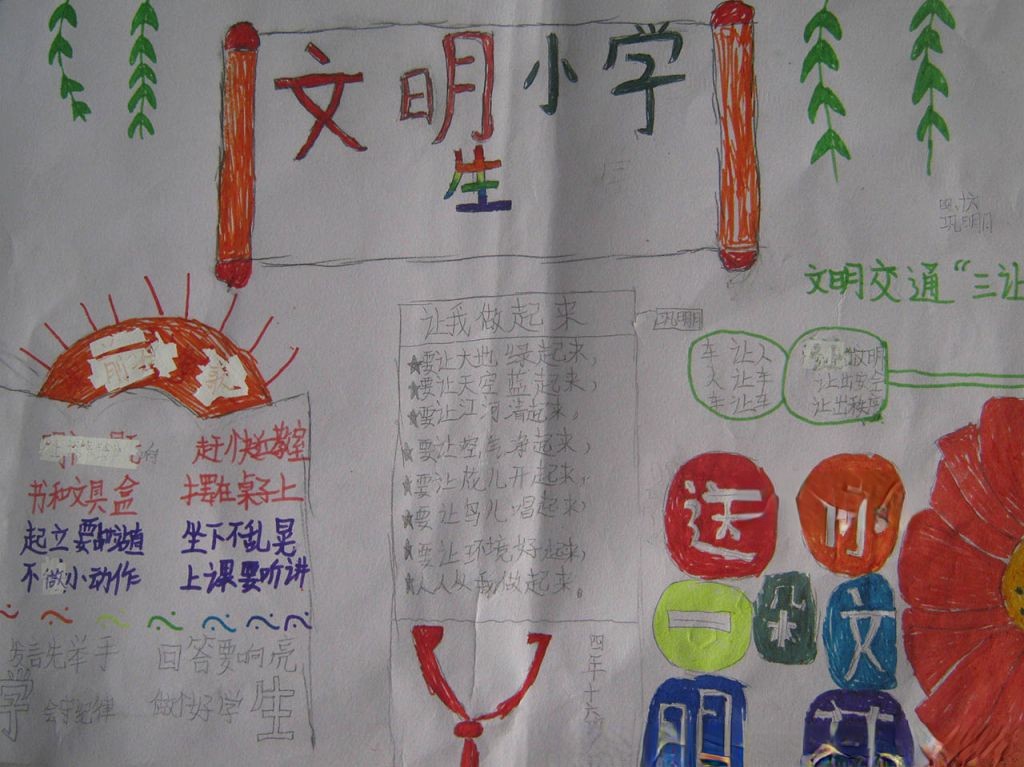 文明小学
生
四、六
巩明月
文明交通“三让
让我做起来
★要让大地绿起来，
★要让天空蓝起来，
★要让江河清起来，
★要让空气净起来，
★要让花儿开起来，
★要让鸟儿唱起来，
★要让环境好起来，
★人人从我做起来。
车让人
人让车
车让车
让出文明
让出安全
让出秩序
赶快进教室
书和文具盒 摆在桌子上
起立要站直 坐下不乱晃
不做小动作 上课要听讲
发言先举手 回答要响亮
学会守纪律 做个好学生
送小
一朵文
明花